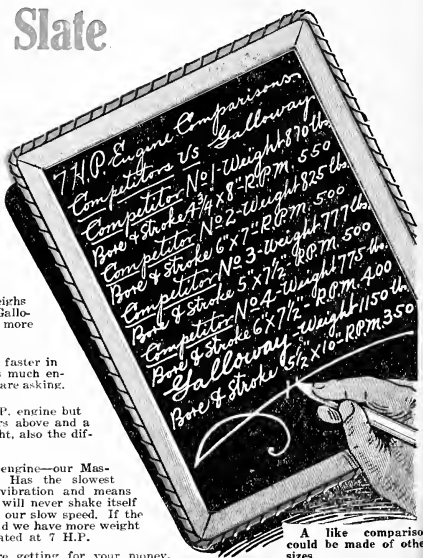 Slate
7 H.P. Engine Comparisons
Competitors Vs Galloway
Competitor No 1-Weight 870 lbs.
Bore & Stroke 4 3/4 x 8" R.P.M. 550
Competitor No 2-Weight 825 lbs.
Bore & Stroke 6"x7" R.P.M. 500
Competitor No 3-Weight 777 lbs.
Bore & Stroke 5"x7 1/2" R.P.M. 500
Competitor No 4-Weight 775 lbs.
Bore & Stroke 6x7 1/2" R.P.M. 400
Galloway-Weight 1150 lb
Bore & Stroke 5 1/2 x 10" R.P.M. 350
eighs
Gallo-
more
faster in
s much en-
are asking.
P. engine but
rs above and a
ht, also the dif-
engine—our Mas-
Has the slowest
vibration and means
will never shake itself
our slow speed. If the
d we have more weight
ated at 7 H.P.
re getting for your money.
A like compariso
could be made of othe
sizes